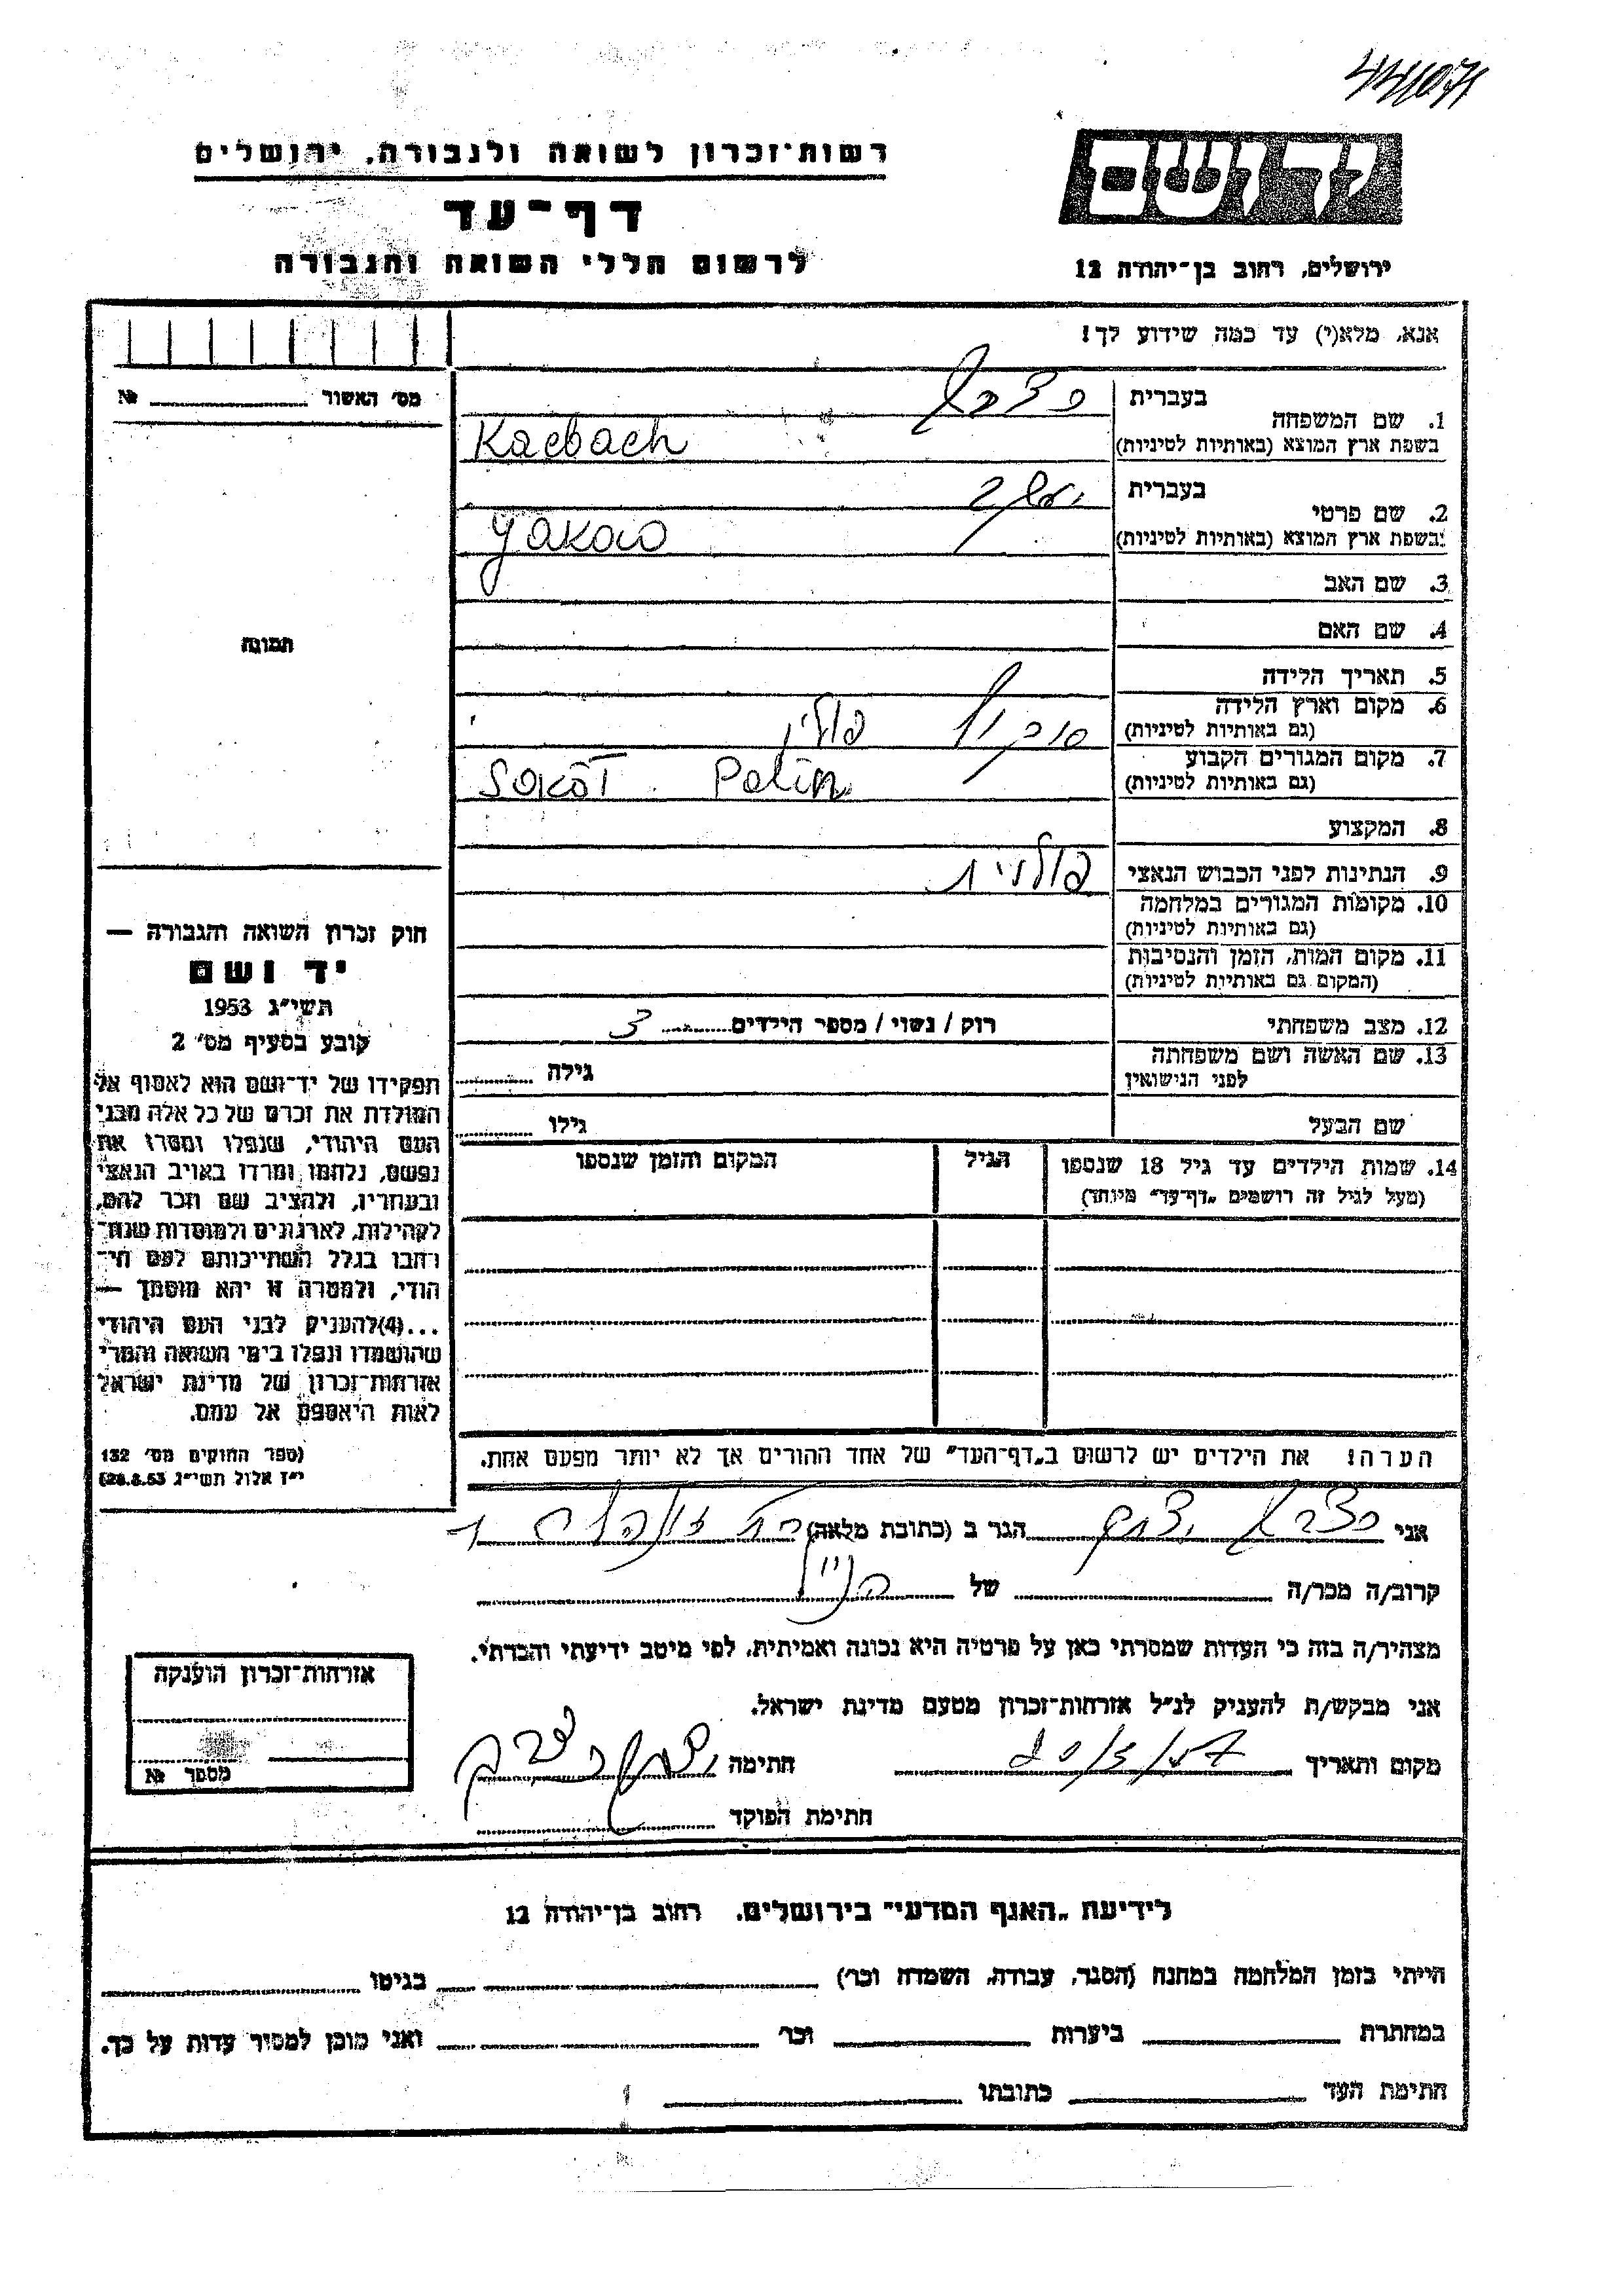 רשות־זכרון לשואה ולגבורה, ירושלים
דף־עד
לרשום חללי השואה והגבורה
יד ושם
ירושלים, רחוב בן־יהודה 12
אנא, מלא(י) עד כמה שידוע לך!
מס׳ האשור № 
1. שם המשפחה בעברית
בשפת ארץ המוצא (באותיות לטיניות) Kaebach
2. שם פרטי בעברית יעקב
בשפת ארץ המוצא (באותיות לטיניות) Yakow
3. שם האב
4. שם האם
תמונה
5. תאריך הלידה
6. מקום וארץ הלידה פולין
(גם באותיות לטיניות)
7. מקום המגורים הקבוע Polin
(גם באותיות לטיניות)
8. המקצוע
9. הנתינות לפני הכבוש הנאצי פולנית
10. מקומות המגורים במלחמה
(גם באותיות לטיניות)
11. מקום המות, הזמן והנסיבות
(המקום גם באותיות לטיניות)
12. מצב משפחתי רוק / נשוי / מספר הילדים 3
13. שם האשה ושם משפחתה גילה
לפני הנישואין
שם הבעל גילו
14. שמות הילדים עד גיל 18 שנספו הגיל המקום והזמן שנספו
(מעל לגיל זה רושמים „דף־עד״ מיוחד)
הערה! את הילדים יש לרשום ב„דף־העד״ של אחד ההורים אך לא יותר מפעם אחת.
חוק זכרון השואה והגבורה —
יד ושם
תשי״ג 1953
קובע בסעיף מס׳ 2
תפקידו של יד־ושם הוא לאסוף אל
המולדת את זכרם של כל אלה מבני
העם היהודי, שנפלו ומסרו את
נפשם, נלחמו ומרדו באויב הנאצי
ובעוזריו, ולהציב שם וזכר להם,
לקהילות, לארגונים ולמוסדות שנח־
רבו בגלל השתייכותם לעם הי־
הודי, ולמטרה זו יהא מוסמך —
...(4) להעניק לבני העם היהודי
שהושמדו ונפלו בימי השואה והמרי
אזרחות־זכרון של מדינת ישראל
לאות היאספם אל עמם.
(ספר החוקים מס׳ 132
י״ז אלול תשי״ג 28.8.53)
אני הגר ב (כתובת מלאה)
קרוב/ה מכר/ה של הנ״ל
מצהיר/ה בזה כי העדות שמסרתי כאן על פרטיה היא נכונה ואמיתית, לפי מיטב ידיעתי והכרתי.
אני מבקש/ת להעניק לנ״ל אזרחות־זכרון מטעם מדינת ישראל.
מקום ותאריך חתימה
חתימת הפוקד
אזרחות־זכרון הוענקה
מספר №
לידיעת „האגף המדעי״ בירושלים, רחוב בן־יהודה 12
הייתי בזמן המלחמה במחנה (הסגר, עבודה, השמדה וכר׳) בגיטו
במחתרת ביערות וכר׳ ואני מוכן למסור עדות על כך.
חתימת העד כתובתו